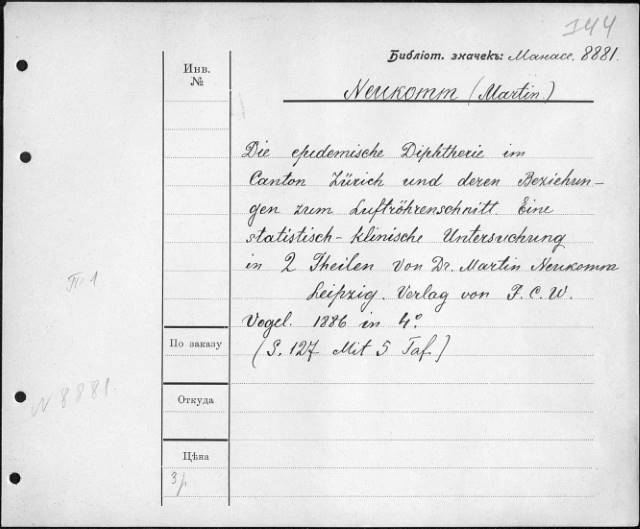 144
Библіот. значекъ: Манасс. 8881.
Инв.
№
Neukomm (Martin.)
Die epidemische Diphtherie im
Canton Zürich und deren Beziehun-
gen zum Luftröhrenschnitt. Eine
statistisch-klinische Untersuchung
in 2 Theilen von Dr. Martin Neukomm
Leipzig. Verlag von F. C. W.
Vogel. 1886 in 4º.
(S. 127 Mit 5 Taf.]
По заказу
N 8881.
Откуда
Цѣна
3 р.